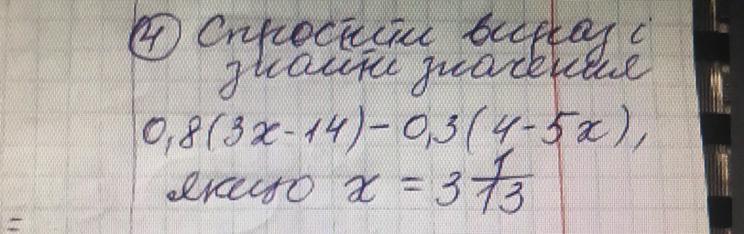 ④ Спростити вираз і
знайти значення
0,8(3x-14)-0,3(4-5x),
якщо x = 3 1/13
=